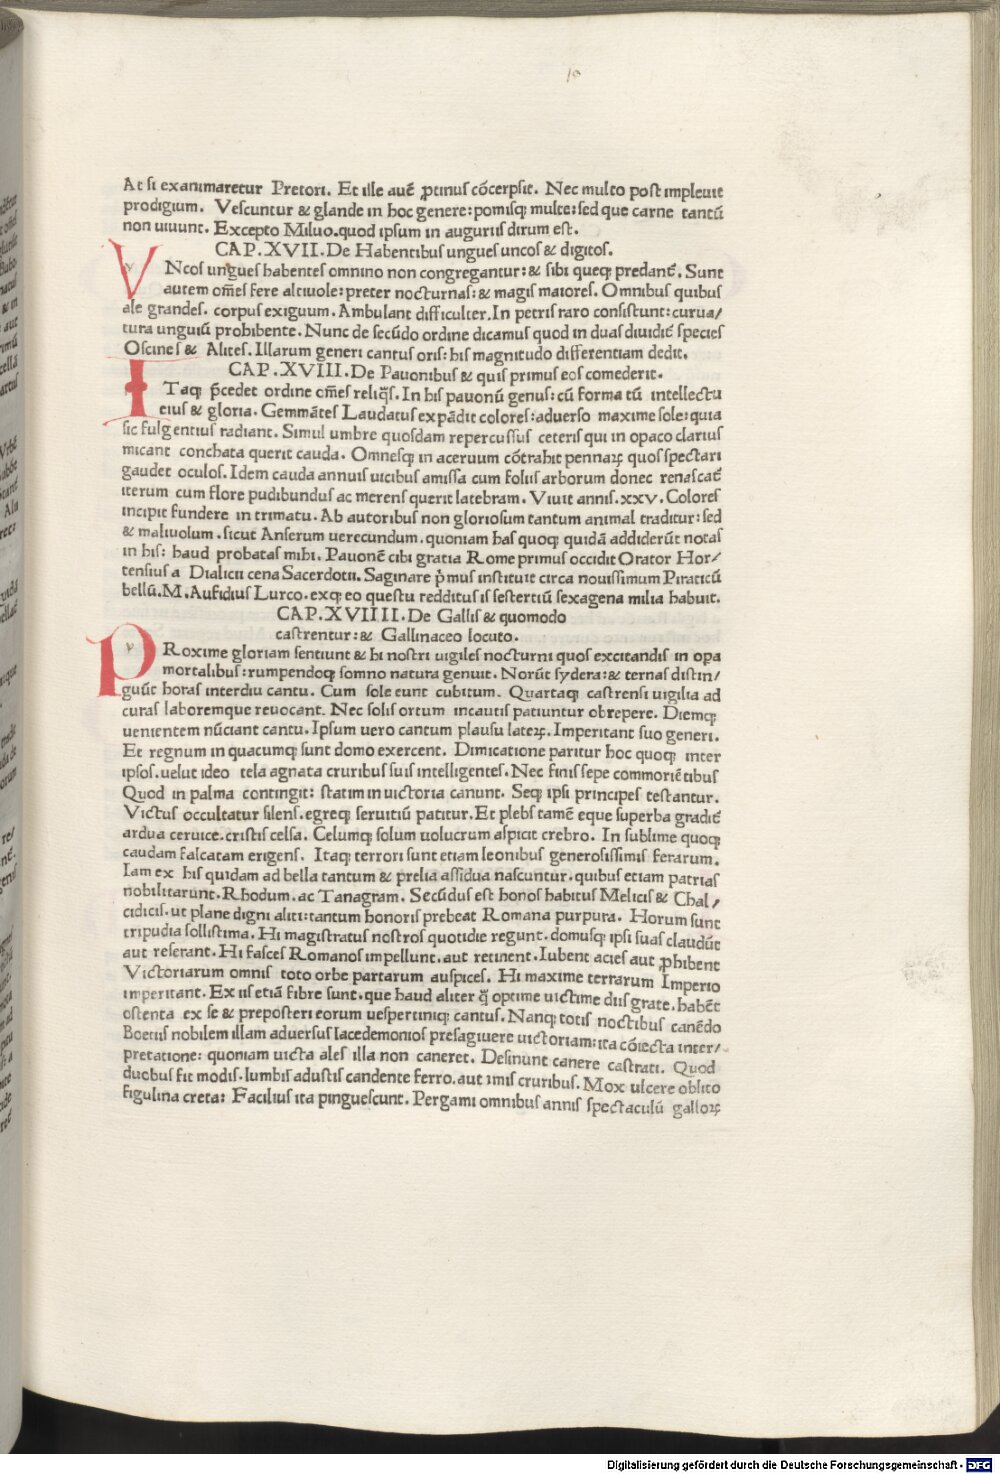 10
At ſi exanimaretur Pretori. Et ille autē ꝓtinus cōcerpſit. Nec multo poſt impleuit
prodigium. Veſcuntur & glande in hoc genere: pomiſq; multe: ſed que carne tantū
non uiuunt. Excepto Miluo. quod ipſum in auguriis dirum eſt.
CAP. XVII. De Habentibus ungues uncos & digitos.
VNcos ungues habentes omnino non congregantur: & ſibi queq; predant̄. Sunt
autem om̄es fere altiuole: preter nocturnas: & magis maiores. Omnibus quibus
ale grandes. corpus exiguum. Ambulant difficulter. In petris raro conſiſtunt: curua/
tura unguiū prohibente. Nunc de ſecūdo ordine dicamus quod in duas diuidit̄ ſpecies
Oſcines & Alites. Illarum generi cantus oris: his magnitudo differentiam dedit.
CAP. XVIII. De Pauonibus & quis primus eos comederit.
ITaq; p̄cedet ordine om̄es reliq̄s. In his pauonū genus: cū forma tū intellectu
eius & gloria. Gemmātes Laudatus expādit colores: aduerſo maxime ſole: quia
ſic fulgentius radiant. Simul umbre quoſdam repercuſſus ceteris qui in opaco clarius
micant conchata querit cauda. Omneſq; in aceruum cōtrahit pennaꝝ quos ſpectari
gaudet oculos. Idem cauda annuis uicibus amiſſa cum foliis arborum donec renaſcat̄
iterum cum flore pudibundus ac merens querit latebram. Viuit annis. xxv. Colores
incipit fundere in trimatu. Ab autoribus non glorioſum tantum animal traditur: ſed
& maliuolum. ſicut Anſerum uerecundum. quoniam has quoq; quidā addiderūt notas
in his: haud probatas mihi. Pauonē cibi gratia Rome primus occidit Orator Hor/
tenſius a Dialicii cena Sacerdotii. Saginare p̄mus inſtituit circa nouiſſimum Piraticū
bellū. M. Aufidius Lurco. exq; eo queſtu redditus iſ ſeſtertiū ſexagena milia habuit.
CAP. XVIIII. De Gallis & quomodo
caſtrentur: & Gallinaceo locuto.
PRoxime gloriam ſentiunt & hi noſtri uigiles nocturni quos excitandis in opa
mortalibus: rumpendoq; ſomno natura genuit. Norūt ſydera: & ternas diſtin/
guūt horas interdiu cantu. Cum ſole eunt cubitum. Quartaq; caſtrenſi uigilia ad
curas laboremque reuocant. Nec ſolis ortum incautis patiuntur obrepere. Diemq;
uenientem nūciant cantu. Ipſum uero cantum plauſu lateꝝ. Imperitant ſuo generi.
Et regnum in quacumq; ſunt domo exercent. Dimicatione paritur hoc quoq; inter
ipſos. uelut ideo tela agnata cruribus ſuis intelligentes. Nec finis ſepe commoriētibus
Quod in palma contingit: ſtatim in uictoria canunt. Seq; ipſi principes teſtantur.
Victus occultatur ſilens. egreq; ſeruitiū patitur. Et plebs tamē eque ſuperba gradit̄
ardua ceruice. criſtis celſa. Celumq; ſolum uolucrum aſpicit crebro. In ſublime quoq;
caudam falcatam erigens. Itaq; terrori ſunt etiam leonibus generoſiſſimis ferarum.
Iam ex his quidam ad bella tantum & prelia aſſidua naſcuntur. quibus etiam patrias
nobilitarunt. Rhodum. ac Tanagram. Secūdus eſt honos habitus Melicis & Chal/
cidicis. ut plane digni aliti: tantum honoris prebeat Romana purpura. Horum ſunt
tripudia ſolliſtima. Hi magiſtratus noſtros quotidie regunt. domuſq; ipſi ſuas claudūt
aut reſerant. Hi faſces Romanos impellunt. aut retinent. Iubent acies aut ꝓhibent
Victoriarum omnis toto orbe partarum auſpices. Hi maxime terrarum Imperio
imperitant. Ex iis etiā fibre ſunt. que haud aliter q̄ optime uictime diis grate. habēt
oſtenta ex ſe & prepoſteri eorum ueſpertiniq; cantus. Nanq; totis noctibus canēdo
Boetiis nobilem illam aduerſus lacedemonios preſagiuere uictoriam: ita cōiecta inter/
pretatione: quoniam uicta ales illa non caneret. Deſinunt canere caſtrati. Quod
duobus fit modis. lumbis aduſtis candente ferro. aut imis cruribus. Mox ulcere oblito
figulina creta: Facilius ita pingueſcunt. Pergami omnibus annis ſpectaculū galloꝝ
Digitalisierung gefördert durch die Deutsche Forschungsgemeinschaft - DFG